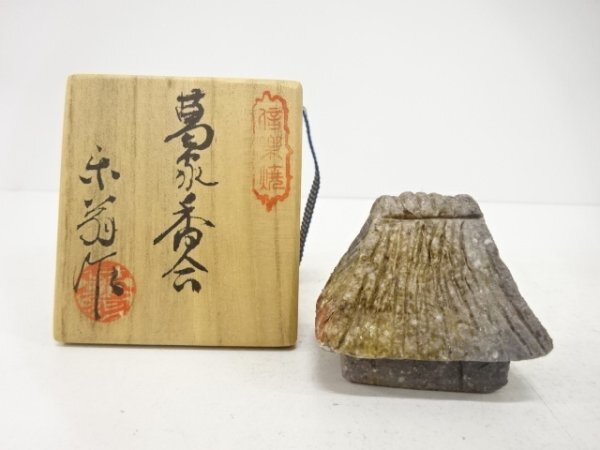 信楽焼
葛家香合
楽翁作